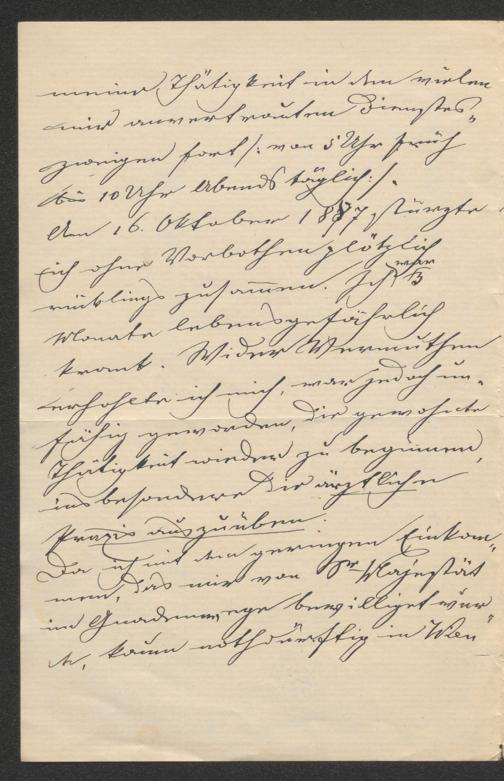 meine Thätigkeit in den vielen
mir anvertrauten Dienstes-
zweigen fort /: von 5 Uhr früh
bis 10 Uhr Abends täglich :/.
Am 16. Oktober 1887, stürzte
ich ohne Vorbothen plötzlich
rücklings zusammen. Ich war
Monate lebensgefährlich
krank. Wider Vermuthen
erhohlte ich mich, war jedoch un-
fähig geworden, die gewohnte
Thätigkeit wieder zu beginnen,
insbesondere die ärztliche
Praxis auszuüben.
Da ich mit dem geringen Einkom-
men, das mir von Sr Majestät
im Gnadenwege bewilliget wur-
de, kaum nothdürftig in Wien